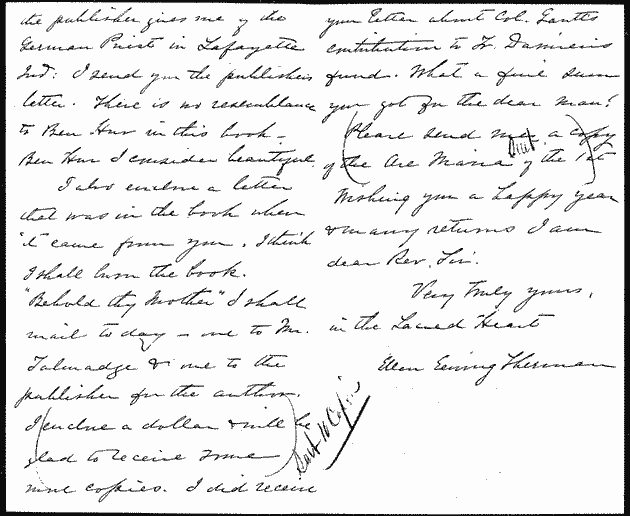 the publisher gives me of the
German Priest in Lafayette
Ind: I send you the publishers
letter. There is no resemblance
to Ben Hur in this book –
Ben Hur I consider beautiful.
I also enclose a letter
that was in the book when
it came from you. I think
I shall burn the book.
"Behold thy Mother" I shall
mail today – one to Mr.
Talmadge & one to the
publisher for the author.
I enclose a dollar & will be
glad to receive some
more copies. I did receive
your letter about Col. Gantt's
contribution to Fr. Damien's
fund. What a fine sum
you got for the dear man!
Please send me a copy
of the Ave Maria of the 1st
Wishing you a happy year
& many returns I am
dear Rev. Sir.
Very truly yours,
in the Sacred Heart
Ellen Ewing Sherman
Sent 16 Copies